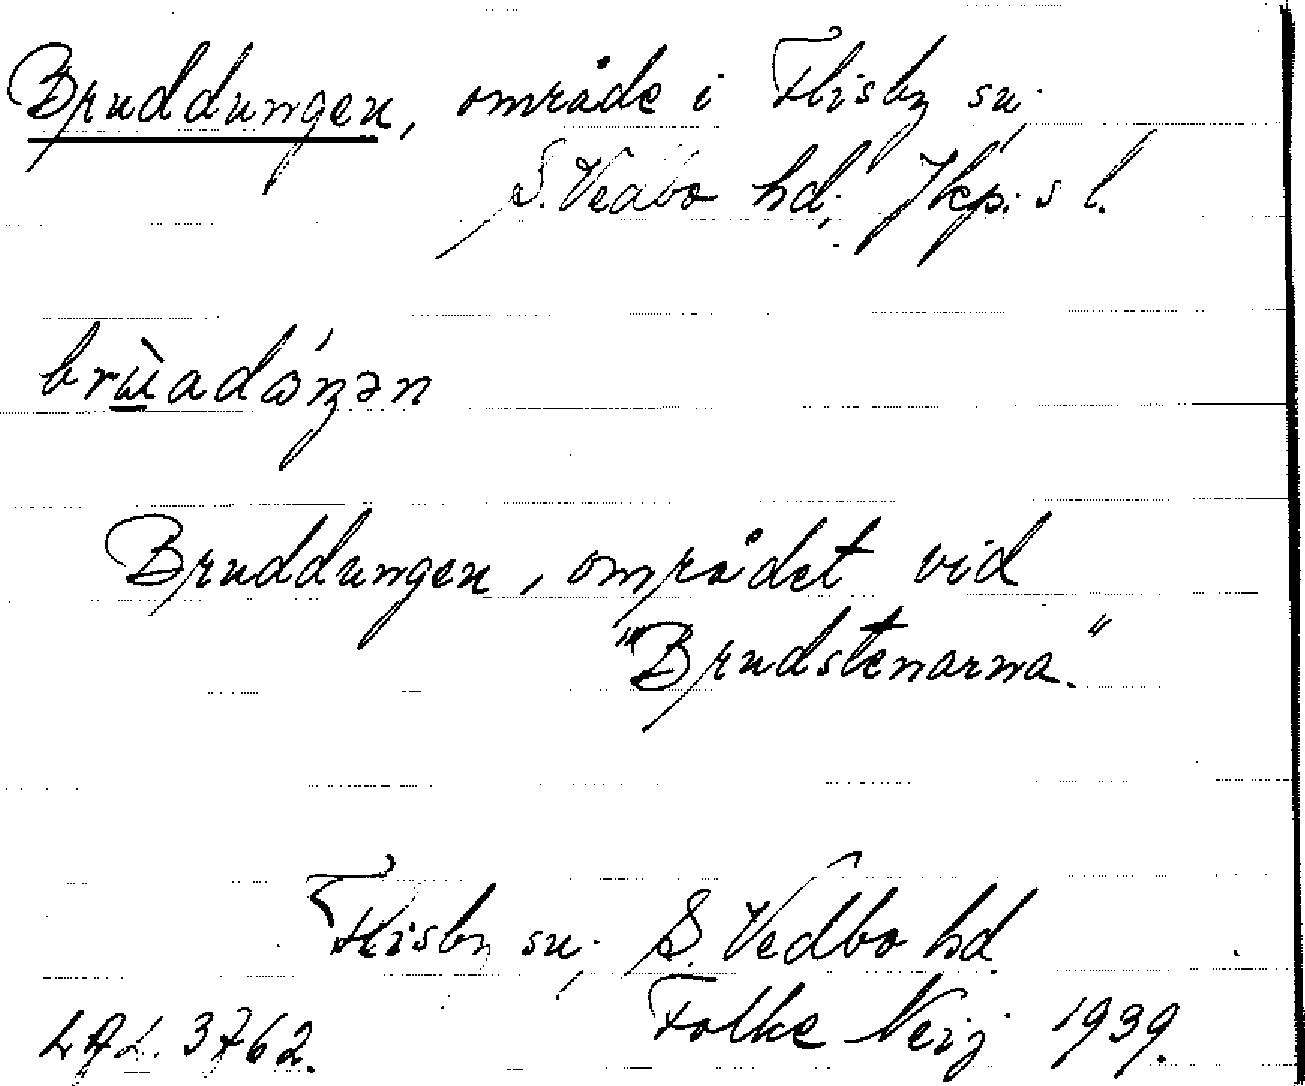 Bruddungen, område i Flisby sn,
S. Vedbo hd, Jkp:s l.
brùadóŋən
Bruddungen, området vid
"Brudstenarna."
Flisby sn, S. Vedbo hd.
LAL. 3762. Folke Neij 1939.